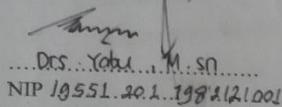 Drs. Yabu, M.sn
NIP 19551.20.1..198212.1.001